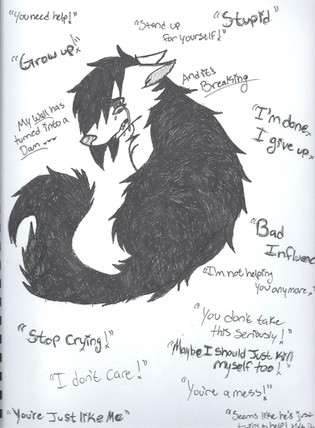 "You need help!"
"Stand up
for yourself!"
"Stupid"
"Grow up!"
And it's
Breaking
My Wall has
turned into a
Dam...
"I'm done,
I give up."
"Bad
Influence"
"I'm not helping
you anymore."
"You don't take
this seriously!"
"Stop Crying!"
"Maybe I should Just Kill
myself too!"
"I don't Care!"
"You're a mess!"
"You're Just like Me"
"Seems like he's just
trying to help!